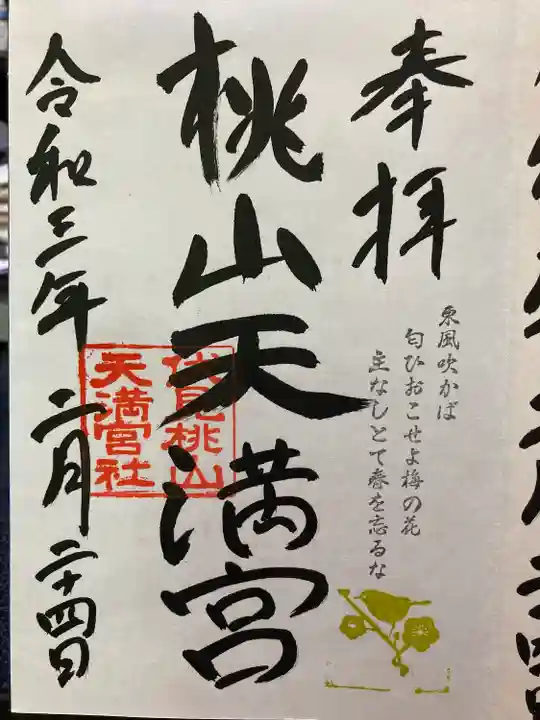 奉拝
東風吹かば
匂ひおこせよ梅の花
主なしとて春を忘るな
桃山天満宮
伏見桃山
天満宮社
令和三年 二月 二十四日